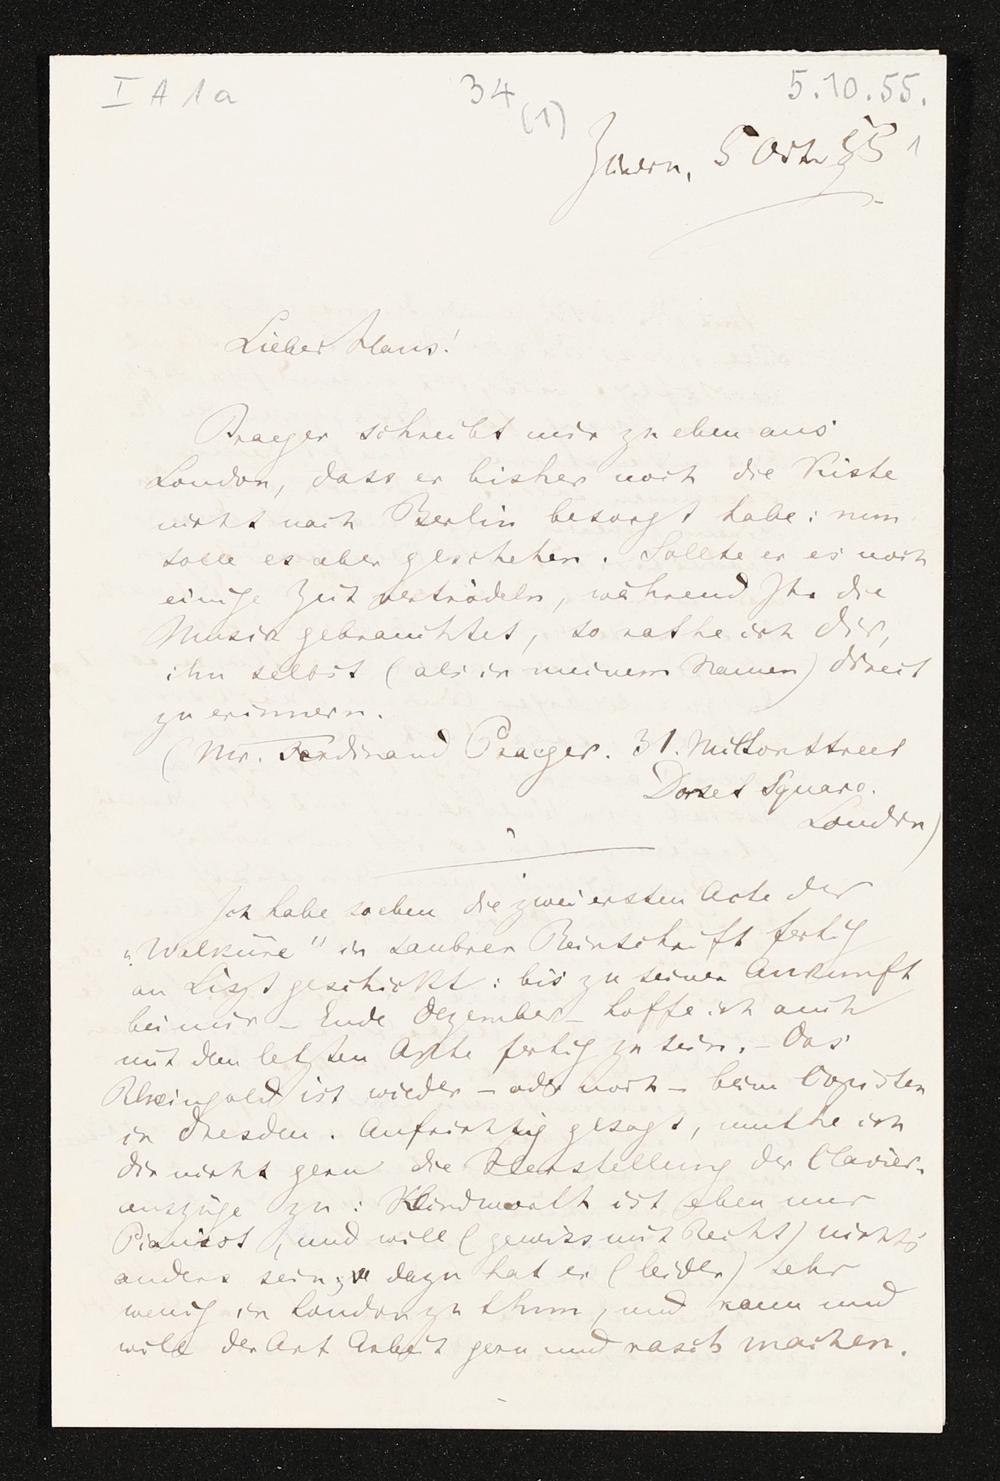 I A 1a
34
(1)
5.10.55.
Zürich, 5 Octr 55
1
Lieber Hans!
Praeger schreibt mir so eben aus
London, dass er bisher noch die Kiste
nicht nach Berlin besorgt habe: nun
solle es aber geschehen. Sollte er es noch
einige Zeit vertrödeln, während Ihr die
Musik gebrauchtet, so rathe ich dir,
ihn selbst (als in meinem Namen) direct
zu erinnern.
(Mr. Ferdinand Praeger. 31. Miltonstreet
Dorset Square.
London)
Ich habe soeben die zwei ersten Acte der
„Walküre" in saubrer Reinschrift fertig
an Liszt geschickt: bis zu seiner Ankunft
bei mir – Ende Dezember – hoffe ich auch
mit dem letzten Akte fertig zu sein. – Das
Rheingold ist wieder – oder noch – beim Copisten
in Dresden. Aufrichtig gesagt, muthe ich
dir nicht gern die Herstellung der Clavier-
auszüge zu: Klindworth ist eben nur
Pianist, und will (gewiss mit Recht) nichts
anders sein; dazu hat er (leider) sehr
wenig in London zu thun, und kann und
will der Art Arbeit gern und rasch machen.